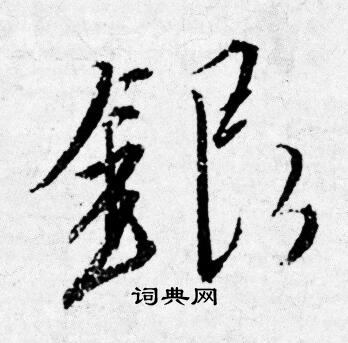 銀
词典网